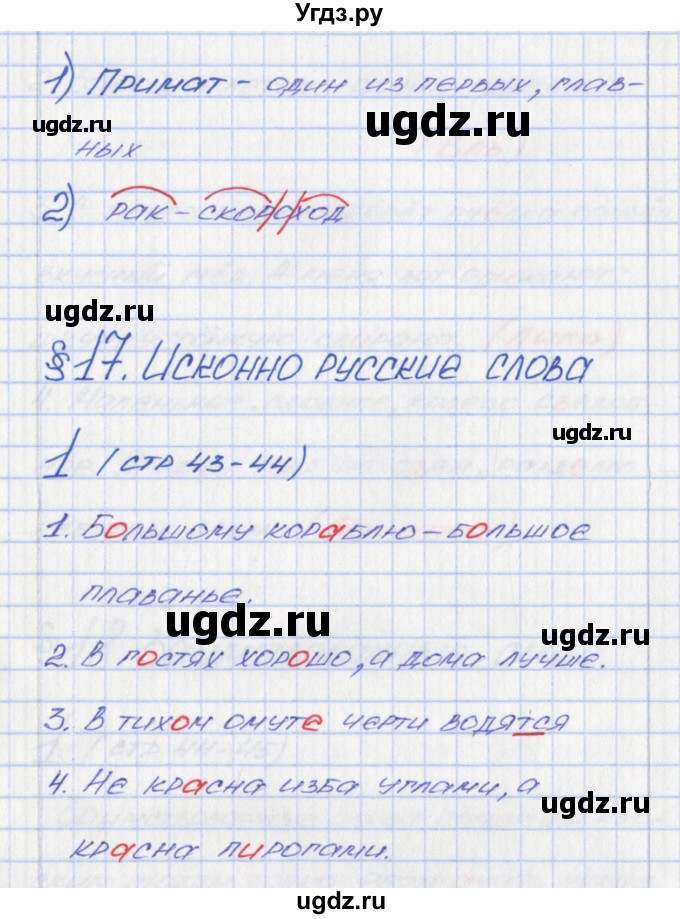 Угдз.ру
1) Примат - один из первых, глав-
ugdz.ru ugdz.ru
ных
2) рак - скороход
ugdz.ru ugdz.ru
§ 17. Исконно русские слова
ugdz.ru
1 (стр 43-44)
1. Большому кораблю - большое
плаванье.
ugdz.ru ugdz.ru
2. В гостях хорошо, а дома лучше.
3. В тихом омуте черти водятся
4. Не красна изба углами, а
ugdz.ru
красна пирогами.
ugdz.ru